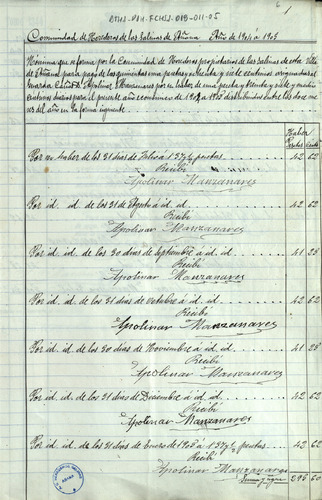 ATHA-DAH-FCHSA-019-011-05
1
Comunidad de Herederos de las Salinas de Añana Año de 1904 á 1905
Nómina que se forma por la Comunidad de Herederos propietarios de las salinas de esta Villa
de Añana para pago de las quinientas una pesetas y ochenta y siete céntimos asignadas al
Guarda Apolinar Manzanares por su haber de una peseta y treinta y siete y medio
céntimos diarios para el presente año económico de 1904 á 1905 distribuidas entre los doce me
ses del año en la forma siguiente
Haber
Pesetas Cents
Por su haber de los 31 dias de Julio á 1'37½ pesetas 42 62
Recibi
Apolinar Manzanares
Por id. id. de los 31 de Agosto á id. id. 42 62
Recibi
Apolinar Manzanares
Por id. id. de los 30 dias de Septiembre á id. id. 41 25
Recibi
Apolinar Manzanares
Por id. id. de los 31 dias de Octubre á id. id. 42 62
Recibi
Apolinar Manzanares
Por id. id. de los 30 dias de Noviembre á id. id. 41 25
Recibi
Apolinar Manzanares
Por id. id. de los 31 dias de Diciembre á id. id. 42 62
Recibi
Apolinar Manzanares
Por id. id. de los 31 dias de Enero de 1905 á 1'37½ pesetas 42 62
Recibi
Apolinar Manzanares
Suma y sigue 295 60